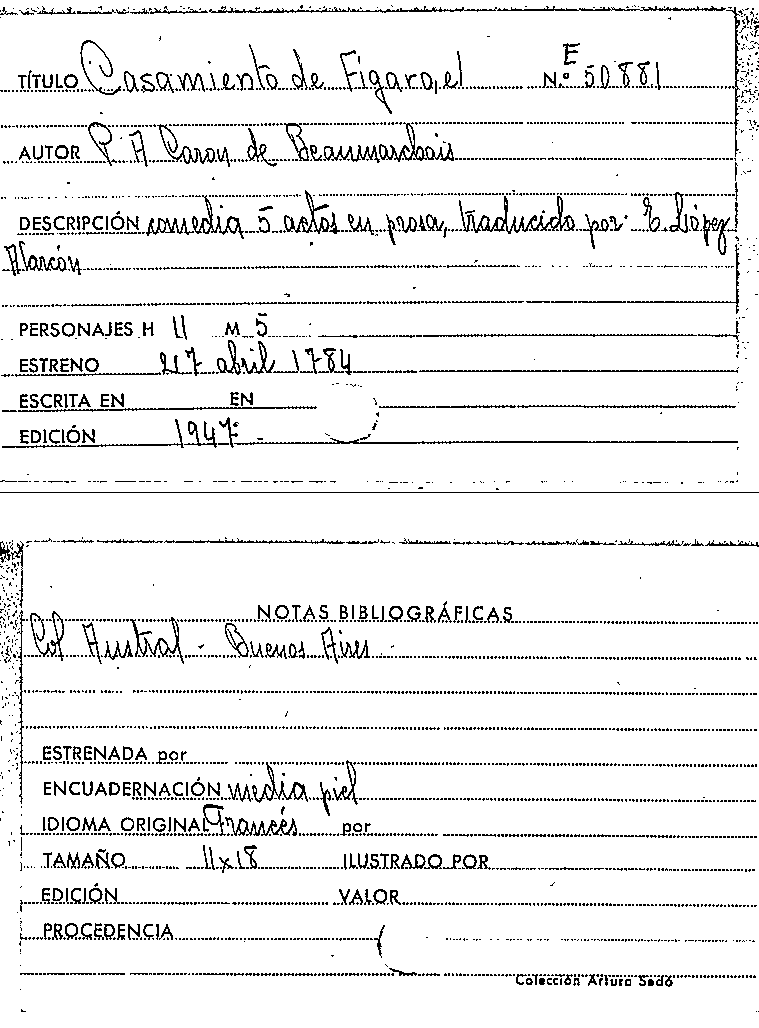 TÍTULO Casamiento de Fígaro, el N.º E 50881
AUTOR P. A Caron de Beaumarchais
DESCRIPCIÓN comedia 5 actos en prosa, traducido por: E. López
Alarcón
PERSONAJES H 11 M 5
ESTRENO 27 abril 1784
ESCRITA EN EN
EDICIÓN 1947.-
NOTAS BIBLIOGRÁFICAS
Col Austral - Buenos Aires -
ESTRENADA por
ENCUADERNACIÓN media piel
IDIOMA ORIGINAL Francés por
TAMAÑO 11x18 ILUSTRADO POR
EDICIÓN VALOR
PROCEDENCIA
Colección Arturo Sedó